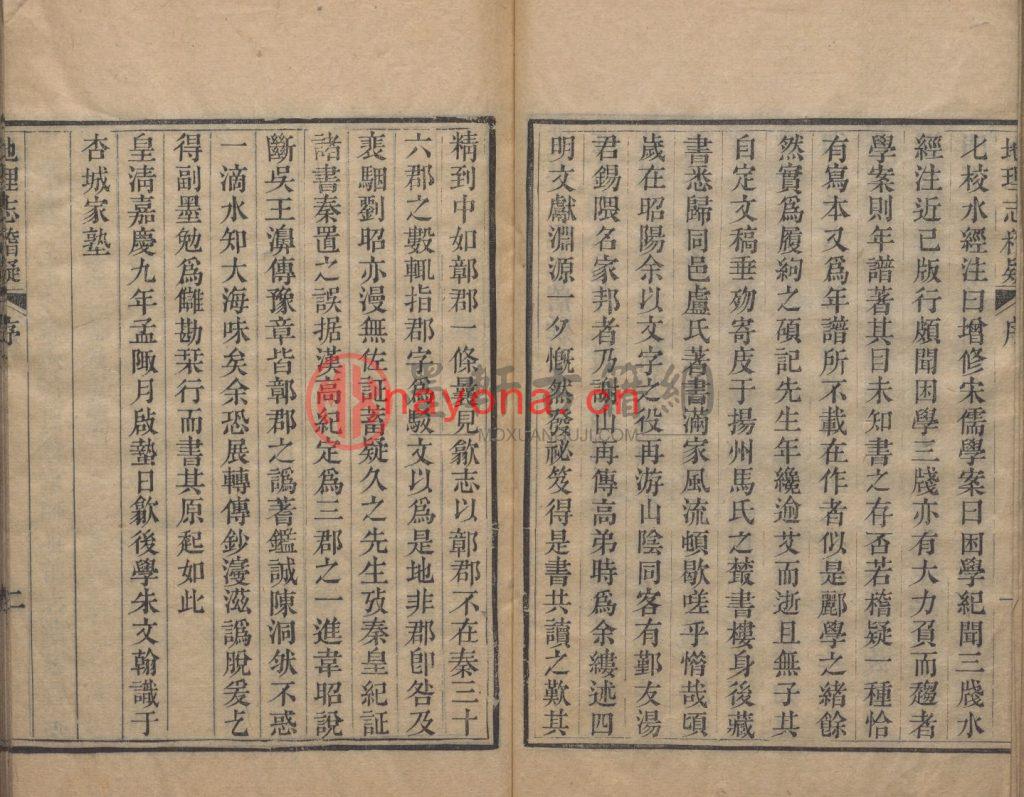 地理志稽疑 序 一
北校水經注曰增修宋儒學案曰困學紀聞三牋水
經注近已版行頗聞困學三牋亦有大力負而趨者
學案則年譜著其目未知書之存否若稽疑一種恰
有寫本又為年譜所不載在作者似是酈學之緒餘
然實為履絇之碩記先生年纔逾艾而逝且無子其
自定文稿垂歿寄庋于揚州馬氏之藂書樓身後藏
書悉歸同邑盧氏著書滿家風流頓歇嗟乎惜哉頃
歲在昭陽余以文字之役再游山陰同客有鄞友湯
君錫隈名家邦者乃謝山再傳高弟時為余縷述四
明文獻淵源一夕慨然發祕笈得是書共讀之歎其
精到中如鄣郡一條最見歙志以鄣郡不在秦三十
六郡之數輒指郡字為駁文以為是地非郡卽咎及
裴駰劉昭亦漫無佐証蓄疑久之先生攷秦皇紀証
諸書秦置之誤据漢高紀定為三郡之一進韋昭說
斷吳王濞傳豫章皆鄣郡之譌著鑑誠陳洞然不惑
一滴水知大海味矣余恐展轉傳鈔寖滋譌脫爰乞
得副墨勉為讎勘栞行而書其原起如此
皇淸嘉慶九年孟陬月啟蟄日歙後學朱文翰識于
杏城家塾
地理志稽疑 序 二
nayona.cn
MOXUANGUJI.COM